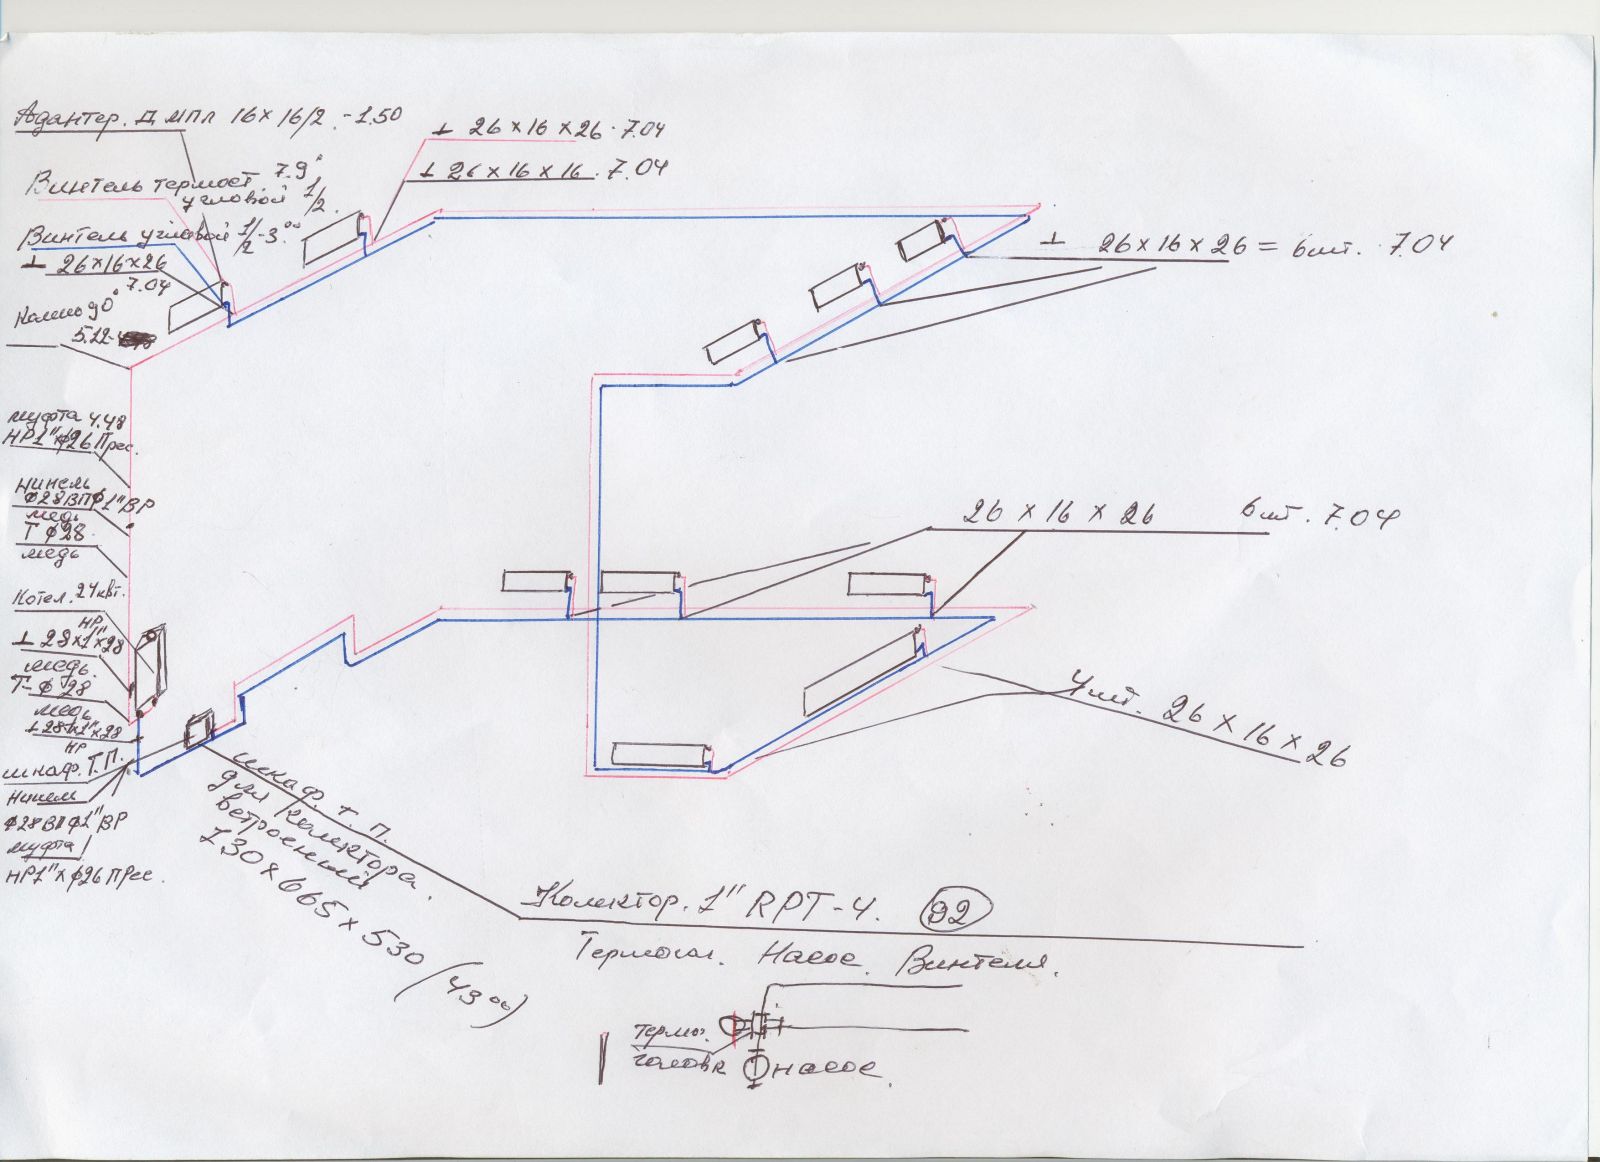 Адантер. Д МПЛ 16 x 16/2 - 1.50
⊥ 26 x 16 x 26 · 7.04
⊥ 26 x 16 x 16 . 7.04
Винтель термост. 7.9°
угловой 1/2.
Винтель угловой 1/2 - 3.°°
⊥ 26 x 16 x 26
7.04
Колено 90°
5.22
⊥ 26 x 16 x 26 = 6 шт. · 7.04
муфта 4.48
НР 1" x ф26 Прес.
Нипель
ф28 ВП ф1" ВР
медь
Т ф28
медь
26 x 16 x 26 6 шт. 7.04
Котел. 24 квт.
НР
⊥ 28 x 1" x 28
медь.
Т - ф 28
медь
⊥ 28 x 1" x 28
НР
шкаф. Т. П.
Нипел
ф28 ВП ф1" ВР
муфта
НР 1" x ф26 ПРес.
4 шт. 26 x 16 x 26
шкаф. т. п.
для колектора.
встроенный
730 x 665 x 530 (43°°)
Колектор. 1" RPT - 4. 92
Термогол. Насос. Винтеля.
Термо.
головк
насос.